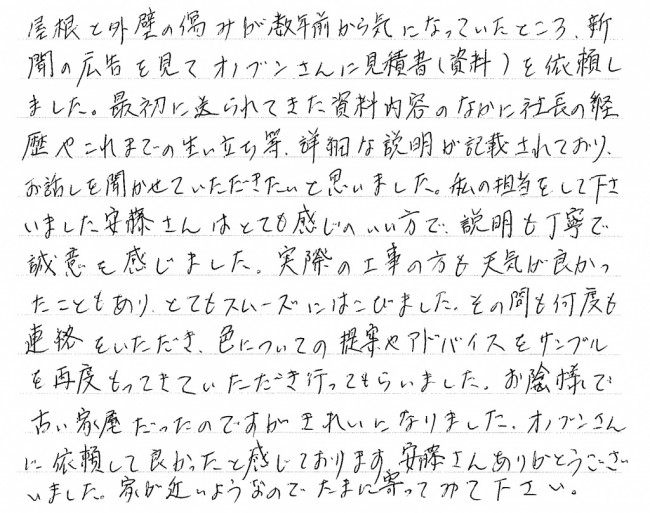 屋根と外壁の傷みが数年前から気になっていたところ、新
聞の広告を見てオノブンさんに見積書(資料)を依頼し
ました。最初に送られてきた資料内容のなかに社長の経
歴やこれまでの生い立ち等、詳細な説明が記載されており、
お話しを聞かせていただきたいと思いました。私の担当をして下さ
いました安藤さんはとても感じのいい方で、説明も丁寧で
誠意を感じました。実際の工事の方も天気が良かっ
たこともあり、とてもスムーズにはこびました。その間も何度も
連絡をいただき、色についての提案やアドバイスをサンプル
を再度もってきていただき行ってもらいました。お陰様で
古い家屋だったのですがきれいになりました。オノブンさん
に依頼して良かったと感じております。安藤さんありがとうござい
ました。家が近いようなのでたまに寄ってみて下さい。